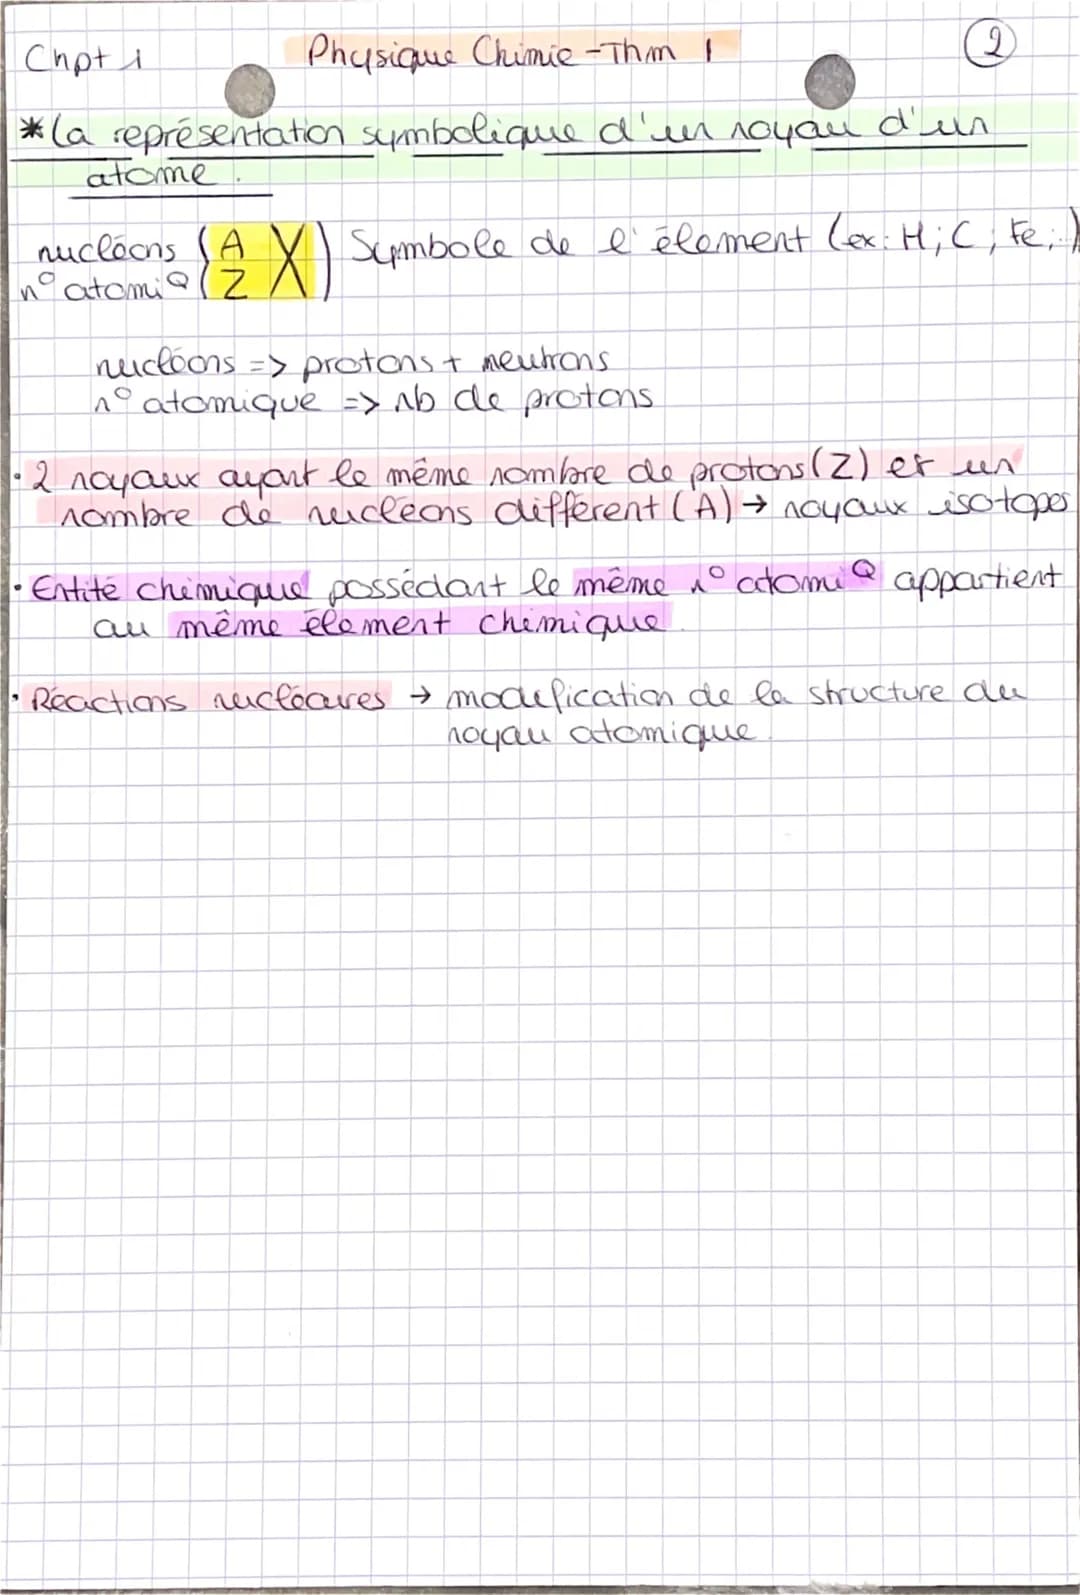 Chpt 1 Physique Chimie - Thm 1 2
* La représentation symbolique d'un noyau d'un
atome.
nucléons { A X } Symbole de l'élément (ex: H; C; Fe;.)
n° atomiQ { Z
nucléons => protons + neutrons
n° atomique => nb de protons
• 2 noyaux ayant le même nombre de protons (Z) et un
nombre de nucléons différent (A) → noyaux isotopes
• Entité chimique possédant le même n° atomiQ appartient
au même élément chimique.
• Réactions nucléaires → modification de la structure du
noyau atomique.